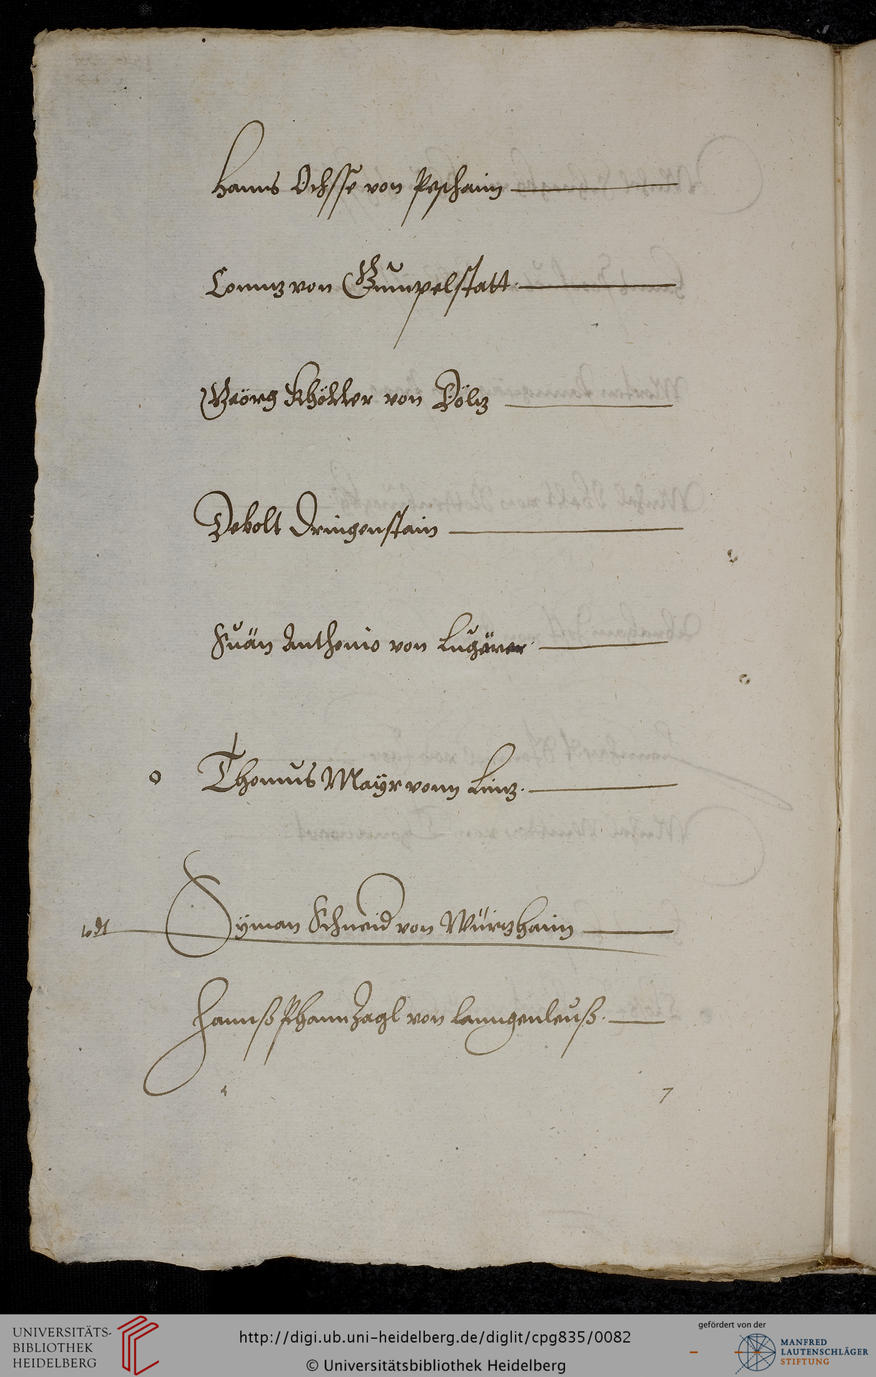 Hanns Ochsse von Peschaim
Connz von Gumpelstatt
Geörg Khöller von Dölz
Debolt Dringenstain
Suän Anthonio von
o Thomus Mayr vonn Linz.
Syman Schneid von Würzhaim
Hannß Phannzagl von Lanngenleuß.
7
UNIVERSITÄTS-
BIBLIOTHEK
HEIDELBERG
http://digi.ub.uni-heidelberg.de/diglit/cpg835/0082
© Universitätsbibliothek Heidelberg
gefördert von der
MANFRED
LAUTENSCHLÄGER
STIFTUNG